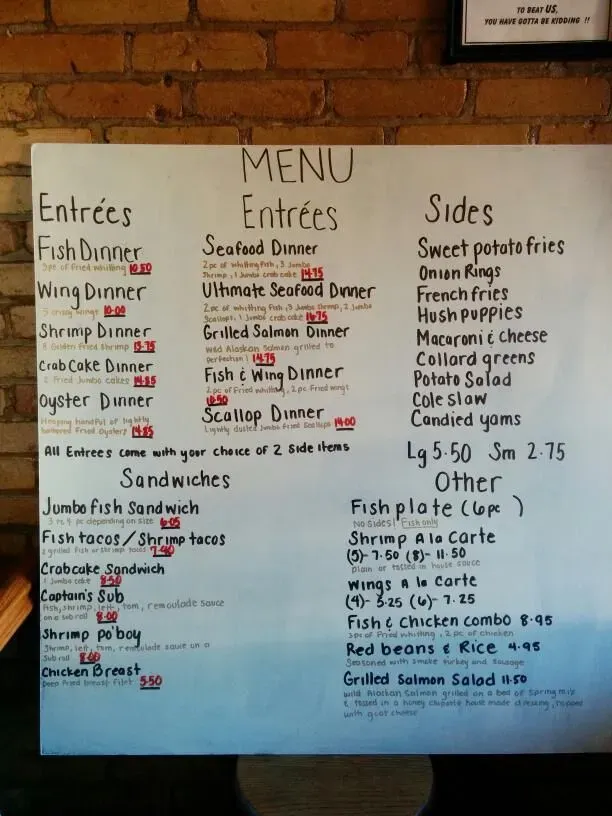 TO BEAT US,
YOU HAVE GOTTA BE KIDDING !!
MENU
Entrées
Fish Dinner
3pc of fried whiting 10.50
Wing Dinner
5 crispy wings 10.00
Shrimp Dinner
8 Golden fried shrimp 13.75
Crab Cake Dinner
2 fried Jumbo cakes 14.85
Oyster Dinner
Heaping handful of lightly
battered fried oysters 14.85
Entrées
Seafood Dinner
2 pc of whiting fish, 3 Jumbo
Shrimp, 1 Jumbo crab cake 14.75
Ultimate Seafood Dinner
2 pc of whiting fish, 3 Jumbo Shrimp, 2 Jumbo
Scallops, 1 Jumbo crab cake 16.75
Grilled Salmon Dinner
Wild Alaskan Salmon grilled to
perfection! 14.75
Fish & Wing Dinner
2pc of fried whiting, 2 pc fried wings
10.50
Scallop Dinner
Lightly dusted Jumbo fried Scallops 14.00
All Entrees come with your choice of 2 Side items
Sides
Sweet potato fries
Onion Rings
French fries
Hush puppies
Macaroni & Cheese
Collard greens
Potato Salad
Cole slaw
Candied yams
Lg 5.50 Sm 2.75
Sandwiches
Jumbo fish Sandwich
3 to 4 pc depending on size 6.05
Fish tacos / Shrimp tacos
2 grilled fish or shrimp tacos 7.90
Crabcake Sandwich
1 Jumbo cake 8.50
Captain's Sub
Fish, shrimp, lett, tom, remoulade sauce
on a sub roll 8.00
Shrimp po'boy
Shrimp, lett, tom, remoulade sauce on a
Sub roll 8.00
Chicken Breast
Deep fried breast filet 5.50
Other
Fish plate (6pc )
No Sides! Fish only
Shrimp A la Carte
(5)- 7.50 (8)- 11.50
plain or tossed in house sauce
Wings A la Carte
(4)- 5.25 (6)- 7.25
Fish & Chicken combo 8.95
3pc of fried whiting, 2 pc of chicken
Red beans & Rice 4.95
Seasoned with smoke turkey and sausage
Grilled Salmon Salad 11.50
Wild Alaskan Salmon grilled on a bed of spring mix
& tossed in a honey chipotle house made dressing, topped
with goat cheese